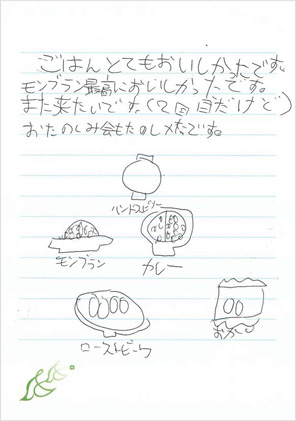 ごはんとてもおいしかったです。
モンブラン最高においしかったです。
また来たいです。(2回目だけど)
おたのしみ会もたのしメたです。
ハンドスピナー
モンブラン
カレー
ローストビーフ